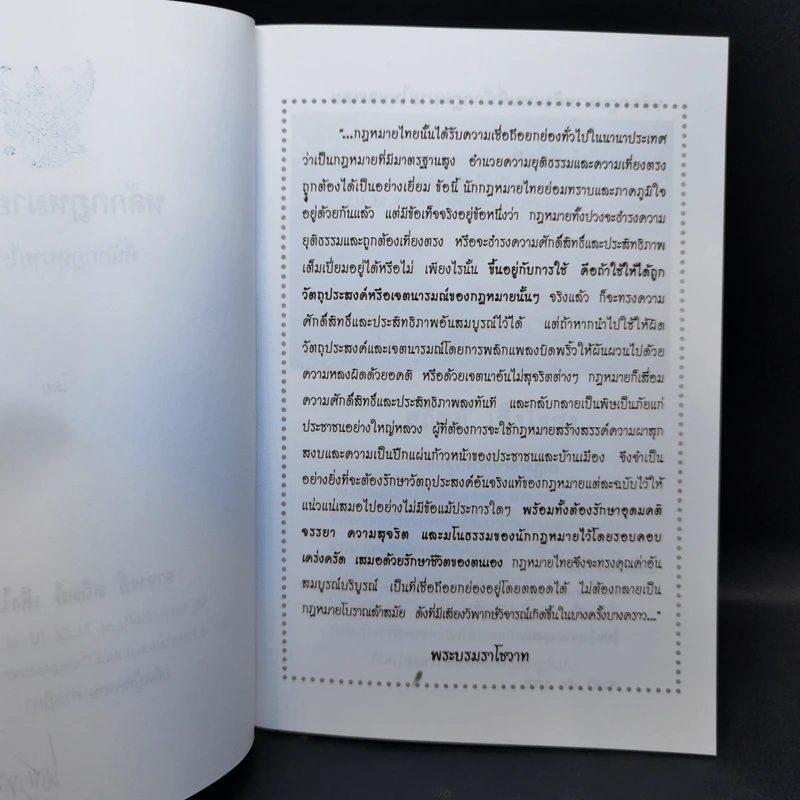 หลักกฎหมาย
ที่นักกฎหมาย
โดย
"...กฎหมายไทยนั้นได้รับความเชื่อถือยกย่องทั่วไปในนานาประเทศ
ว่าเป็นกฎหมายที่มีมาตรฐานสูง อำนวยความยุติธรรมและความเที่ยงตรง
ถูกต้องได้เป็นอย่างเยี่ยม ข้อนี้ นักกฎหมายไทยย่อมทราบและภาคภูมิใจ
อยู่ด้วยกันแล้ว แต่มีข้อเท็จจริงอยู่ข้อหนึ่งว่า กฎหมายทั้งปวงจะธำรงความ
ยุติธรรมและถูกต้องเที่ยงตรง หรือจะธำรงความศักดิ์สิทธิ์และประสิทธิภาพ
เต็มเปี่ยมอยู่ได้หรือไม่ เพียงไรนั้น ขึ้นอยู่กับการใช้ คือถ้าใช้ให้ได้ถูก
วัตถุประสงค์หรือเจตนารมณ์ของกฎหมายนั้นๆ จริงแล้ว ก็จะทรงความ
ศักดิ์สิทธิ์และประสิทธิภาพอันสมบูรณ์ไว้ได้ แต่ถ้าหากนำไปใช้ให้ผิด
วัตถุประสงค์และเจตนารมณ์โดยการพลิกแพลงบิดพริ้วให้ผันผวนไปด้วย
ความหลงผิดด้วยอคติ หรือด้วยเจตนาอันไม่สุจริตต่างๆ กฎหมายก็เสื่อม
ความศักดิ์สิทธิ์และประสิทธิภาพลงทันที และกลับกลายเป็นพิษเป็นภัยแก่
ประชาชนอย่างใหญ่หลวง ผู้ที่ต้องการจะใช้กฎหมายสร้างสรรค์ความผาสุก
สงบและความเป็นปึกแผ่นก้าวหน้าของประชาชนและบ้านเมือง จึงจำเป็น
อย่างยิ่งที่จะต้องรักษาวัตถุประสงค์อันจริงแท้ของกฎหมายแต่ละฉบับไว้ให้
แน่วแน่เสมอไปอย่างไม่มีข้อแม้ประการใดๆ พร้อมทั้งต้องรักษาอุดมคติ
จรรยา ความสุจริต และมโนธรรมของนักกฎหมายไว้โดยรอบคอบ
เคร่งครัด เสมอด้วยรักษาชีวิตของตนเอง กฎหมายไทยจึงจะทรงคุณค่าอัน
สมบูรณ์บริบูรณ์ เป็นที่เชื่อถือยกย่องอยู่โดยตลอดได้ ไม่ต้องกลายเป็น
กฎหมายโบราณล้าสมัย ดังที่มีเสียงวิพากษ์วิจารณ์เกิดขึ้นในบางครั้งบางคราว..."
พระบรมราโชวาท